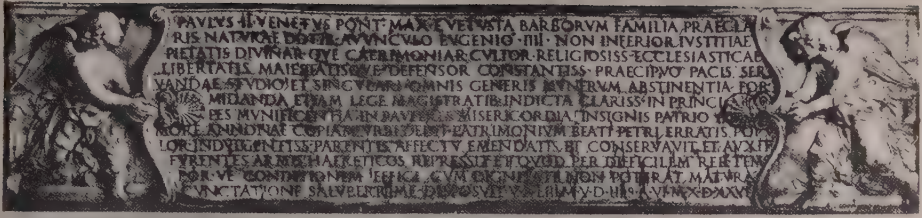 PAVLVS II VENETVS PONT MAX E VETVSTA BARBORVM FAMILIA PRAECLA
RIS NATVRAE AVVNCVLO EVGENIO IIII NON INFERIOR IVSTITIAE
PIETATIS DIVINAR QVE CAERIMONIAR CVLTOR RELIGIOSISS ECCLESIASTICAE
LIBERTATIS MAIESTATISQVE DEFENSOR CONSTANTISS PRAECIPVO PACIS SER
VANDAE STVDIO ET SINGVLARI OMNIS GENERIS MVNERVM ABSTINENTIA FOR
MIDANDA ETIAM LEGE MAGISTRATIB INDICTA CLARISS IN PRINCI
PES MVNIFICENTIA IN PAVPERES MISERICORDIA INSIGNIS PATRIO
MORE ANNONAE COPIAM VRBI DEDIT PATRIMONIVM BEATI PETRI ERRATIS PO
LOR INDVLGENTISS PARENTIS AFFECTV EMENDATIS ET CONSERVAVIT ET AVXIT
FVRENTES ARMIS HAERETICOS REPRESSIT ET QVOD PER DIFFICILEM REI ET TEM
POR VE CONDITIONEM EFFICI CVM DIGNITATE NON POTERAT MATVRA
CVNCTATIONE SALVBERRIME DISPOSVIT